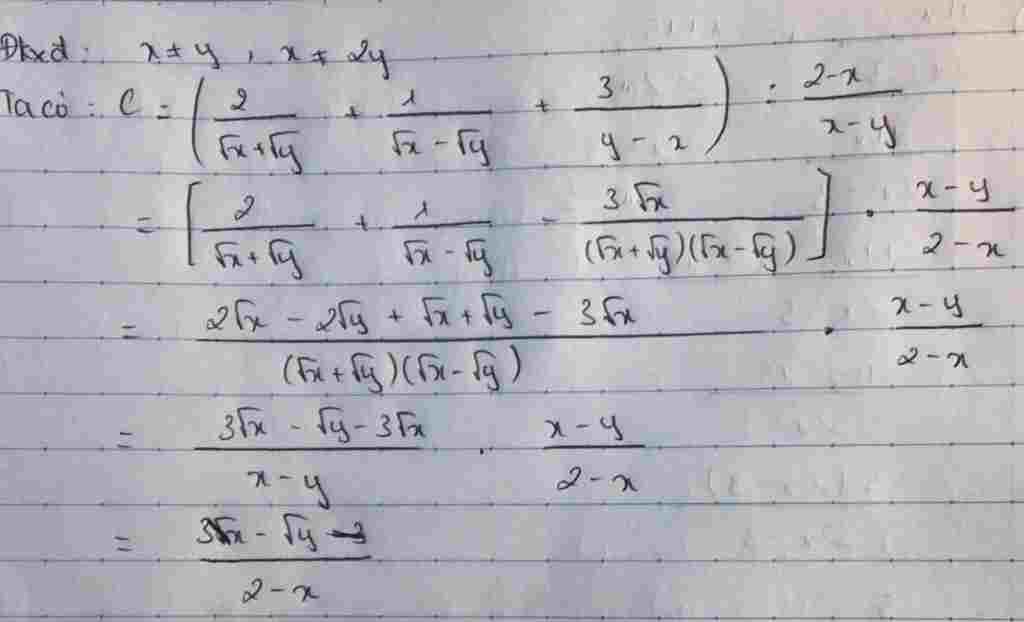 Đkxđ: x ≠ y, x ≠ 2y
Ta có: C = (2/(√x+√y) + 1/(√x-√y) + 3/(y-x)) : (2-x)/(x-y)
= [2/(√x+√y) + 1/(√x-√y) - 3√x/((√x+√y)(√x-√y))] . (x-y)/(2-x)
= (2√x - 2√y + √x + √y - 3√x)/((√x+√y)(√x-√y)) . (x-y)/(2-x)
= (3√x - √y - 3√x)/(x-y) . (x-y)/(2-x)
= (3√x - √y - 3)/(2-x)